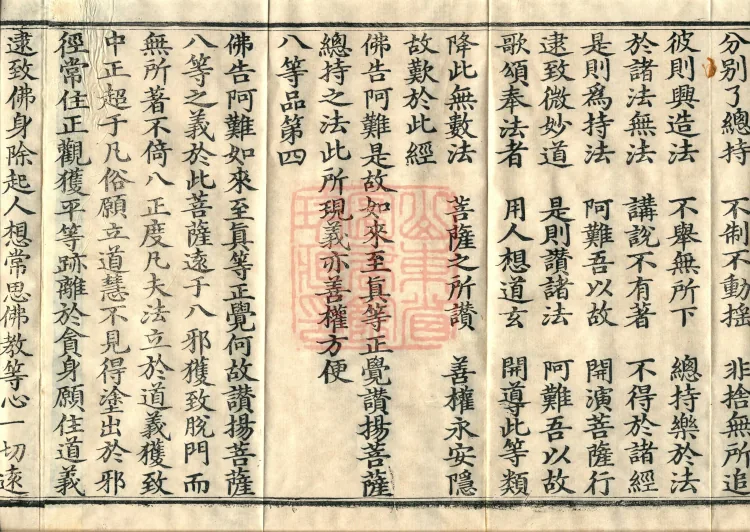 分别了總持　不制不動揺　非捨無所追
彼則興造法　不舉無所下　總持樂於法
於諸法無法　講說不有著　不得於諸經
是則爲持法　阿難吾以故　開演菩薩行
逮致微妙道　是則讚諸法　阿難吾以故
歌頌奉法者　用人想道玄　開導此等類
降此無數法　菩薩之所讚　善權永安隱
故歎於此經
佛告阿難是故如來至真等正覺讚揚菩薩
總持之法此所現義亦善權方便
八等品第四
佛告阿難如來至真等正覺何故讚揚菩薩
八等之義於此菩薩遠于八邪獲致脫門而
無所著不倚八正度凡夫法立於道義獲致
中正超于凡俗願立道慧不見得塗出於邪
徑常住正觀獲平等跡離於貪身願住道義
逮致佛身除起人想常思佛教等心一切遠